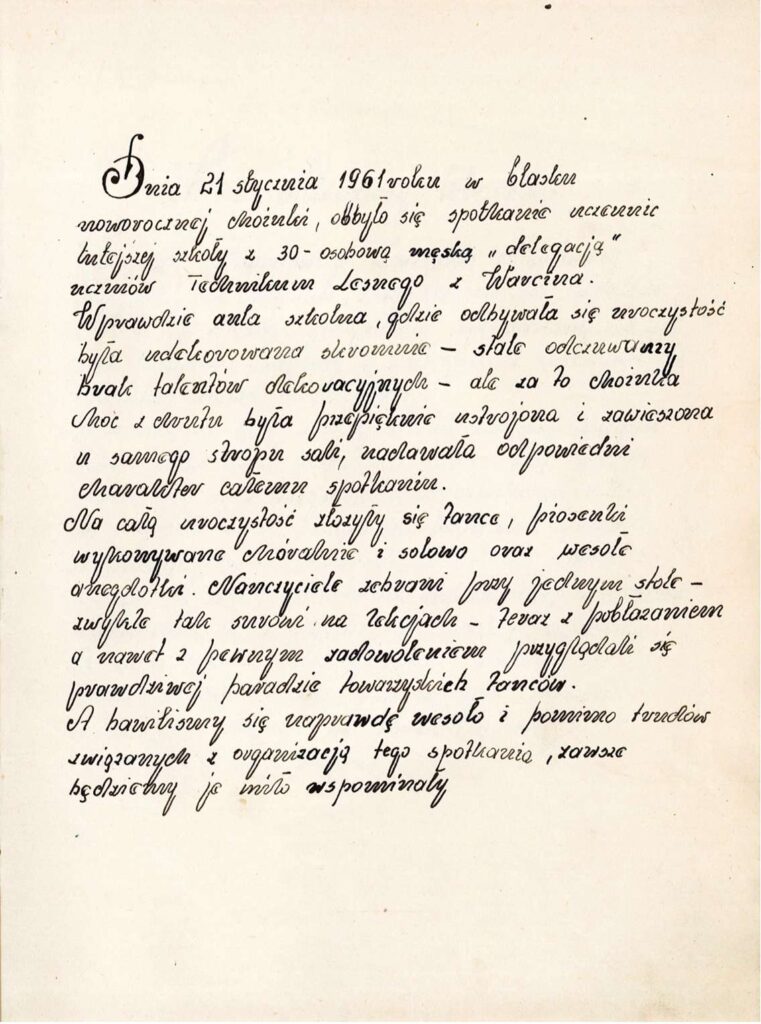 Dnia 21 stycznia 1961 roku w blasku
noworocznej choinki, obbyło się spotkanie uczennic
tutejszej szkoły z 30-osobową męską „delegacją"
uczniów Technikum Lesnego z Warcina.
Wprawdzie aula szkolna, gdzie odbywała się uroczystość
była udekorowana skromnie – stale odczuwamy
brak talentów dekoracyjnych – ale za to choinka
choć z drutu była przepięknie ustrojona i zawieszona
u samego stropu sali, nadawała odpowiedni
charakter całemu spotkaniu.
Na całą uroczystość złożyły się tance, piosenki
wykonywane chóralnie i solowo oraz wesołe
anegdotki. Nauczyciele zebrani przy jednym stole –
zwykle tak surowi na lekcjach – teraz z pobłażaniem
a nawet z pewnym zadowoleniem przyglądali się
prawdziwej paradzie towarzyskich tańców.
A bawiliśmy się naprawdę wesoło i pomimo trudów
związanych z organizacją tego spotkania, zawsze
będziemy je miło wspominały